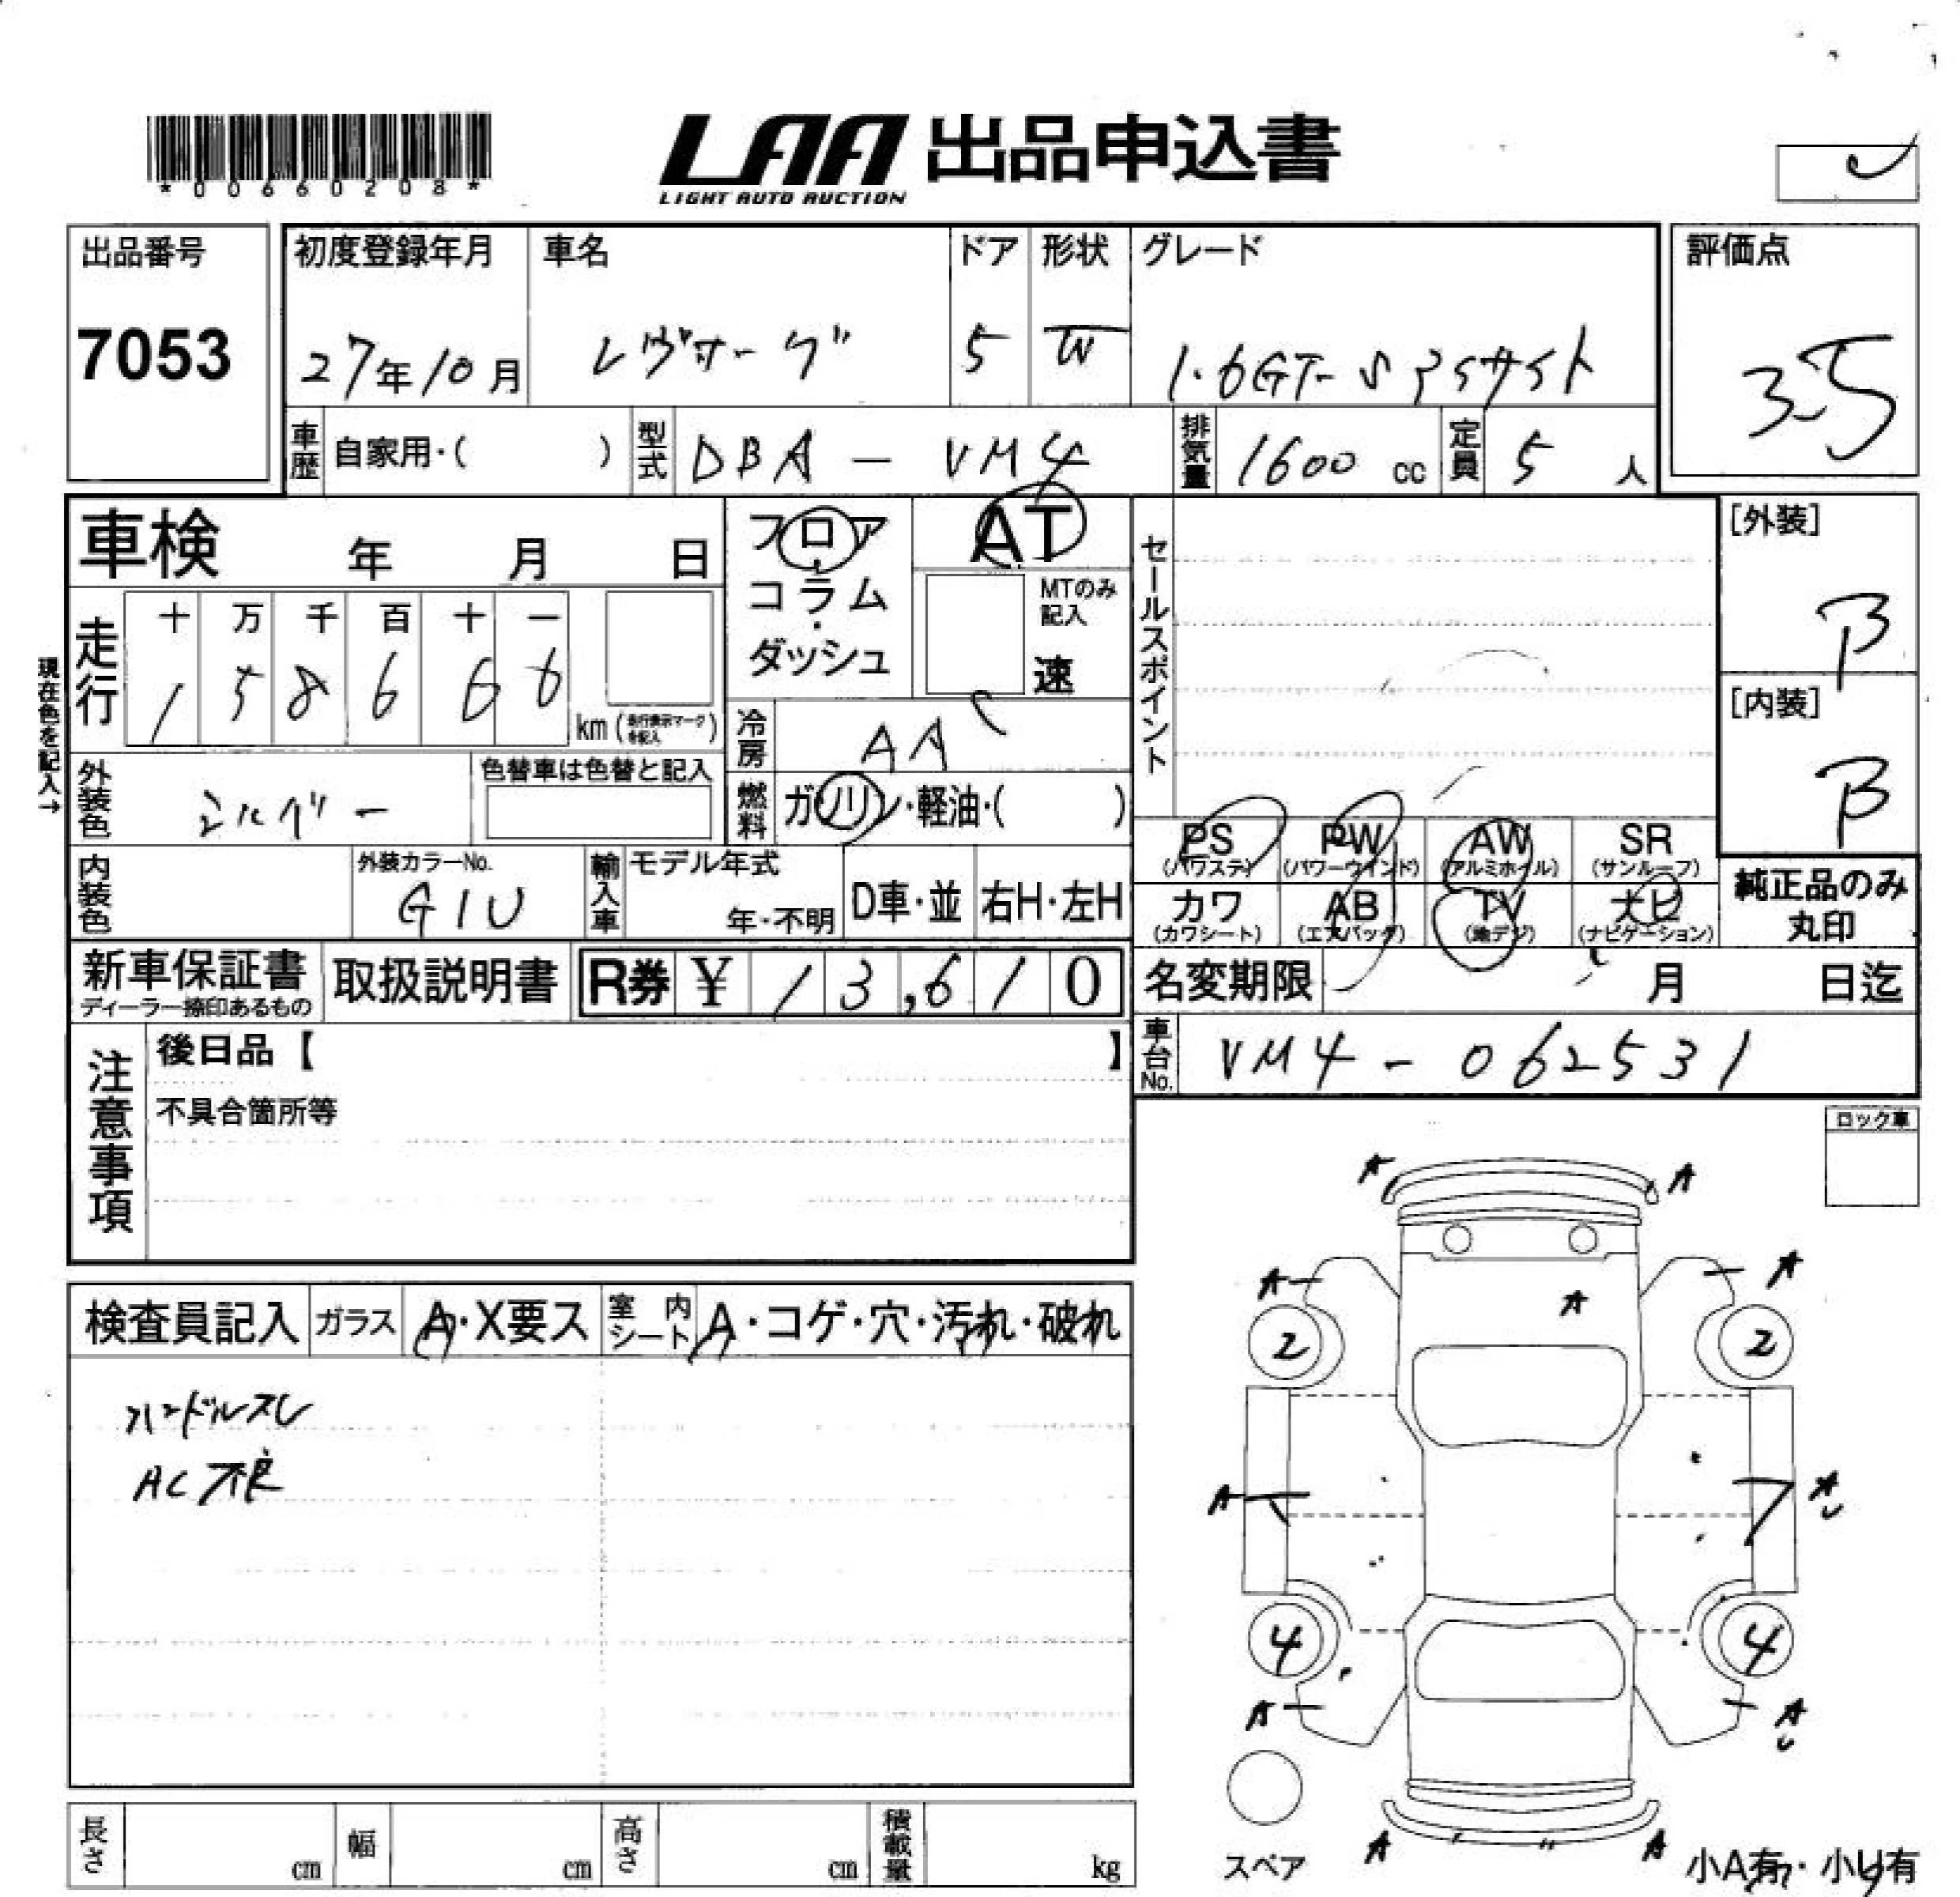 *00660208*
LAA 出品申込書
LIGHT AUTO AUCTION
出品番号
7053
初度登録年月
27年10月
車名
レヴォーグ
ドア
5
形状
W
グレード
1.6GT-S アイサイト
評価点
3.5
車歴
自家用・( )
型式
DBA - VM4
排気量
1600 cc
定員
5 人
車検 年 月 日
フロア・コラム・ダッシュ
AT
MTのみ記入
速
セールスポイント
[外装]
B
[内装]
B
現在色を記入→
走行
十 万 千 百 十 一
1 5 8 6 6 6
km (走行表示マークを記入)
冷房
AAC
外装色
シルバー
色替車は色替と記入
燃料
ガソリン・軽油・( )
PS (パワステ)
PW (パワーウインド)
AW (アルミホイル)
SR (サンルーフ)
カワ (カワシート)
AB (エアバッグ)
TV (地デジ)
ナビ (ナビゲーション)
純正品のみ丸印
内装色
外装カラーNo.
G1U
輸入車
モデル年式
年・不明
D車・並
右H・左H
新車保証書
ディーラー捺印あるもの
取扱説明書
R券 ¥ 13,610
名変期限 月 日迄
車台No.
VM4 - 062531
注意事項
後日品【 】
不具合箇所等
ロック車
検査員記入
ガラス
A・X要ス
室内シート
A・コゲ・穴・汚れ・破れ
ハンドルスレ
AC不良
A A
A A
A
2 2
A A
4 4
A A
A A
スペア
小A有・小U有
長さ cm
幅 cm
高さ cm
積載量 kg